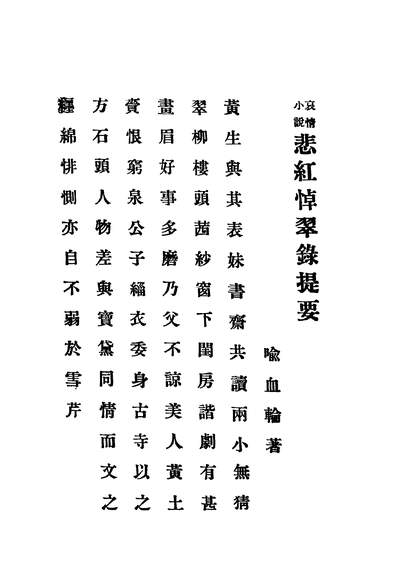 哀情小說悲紅悼翠錄提要
喩血輪著
黃生與其表妹書齋共讀兩小無猜
翠柳樓頭茜紗窗下閨房諧劇有甚
畫眉好事多磨乃父不諒美人黃土
賫恨窮泉公子緇衣委身古寺以之
方石頭人物差與寶黛同情而文之
纏綿悱惻亦自不弱於雪芹